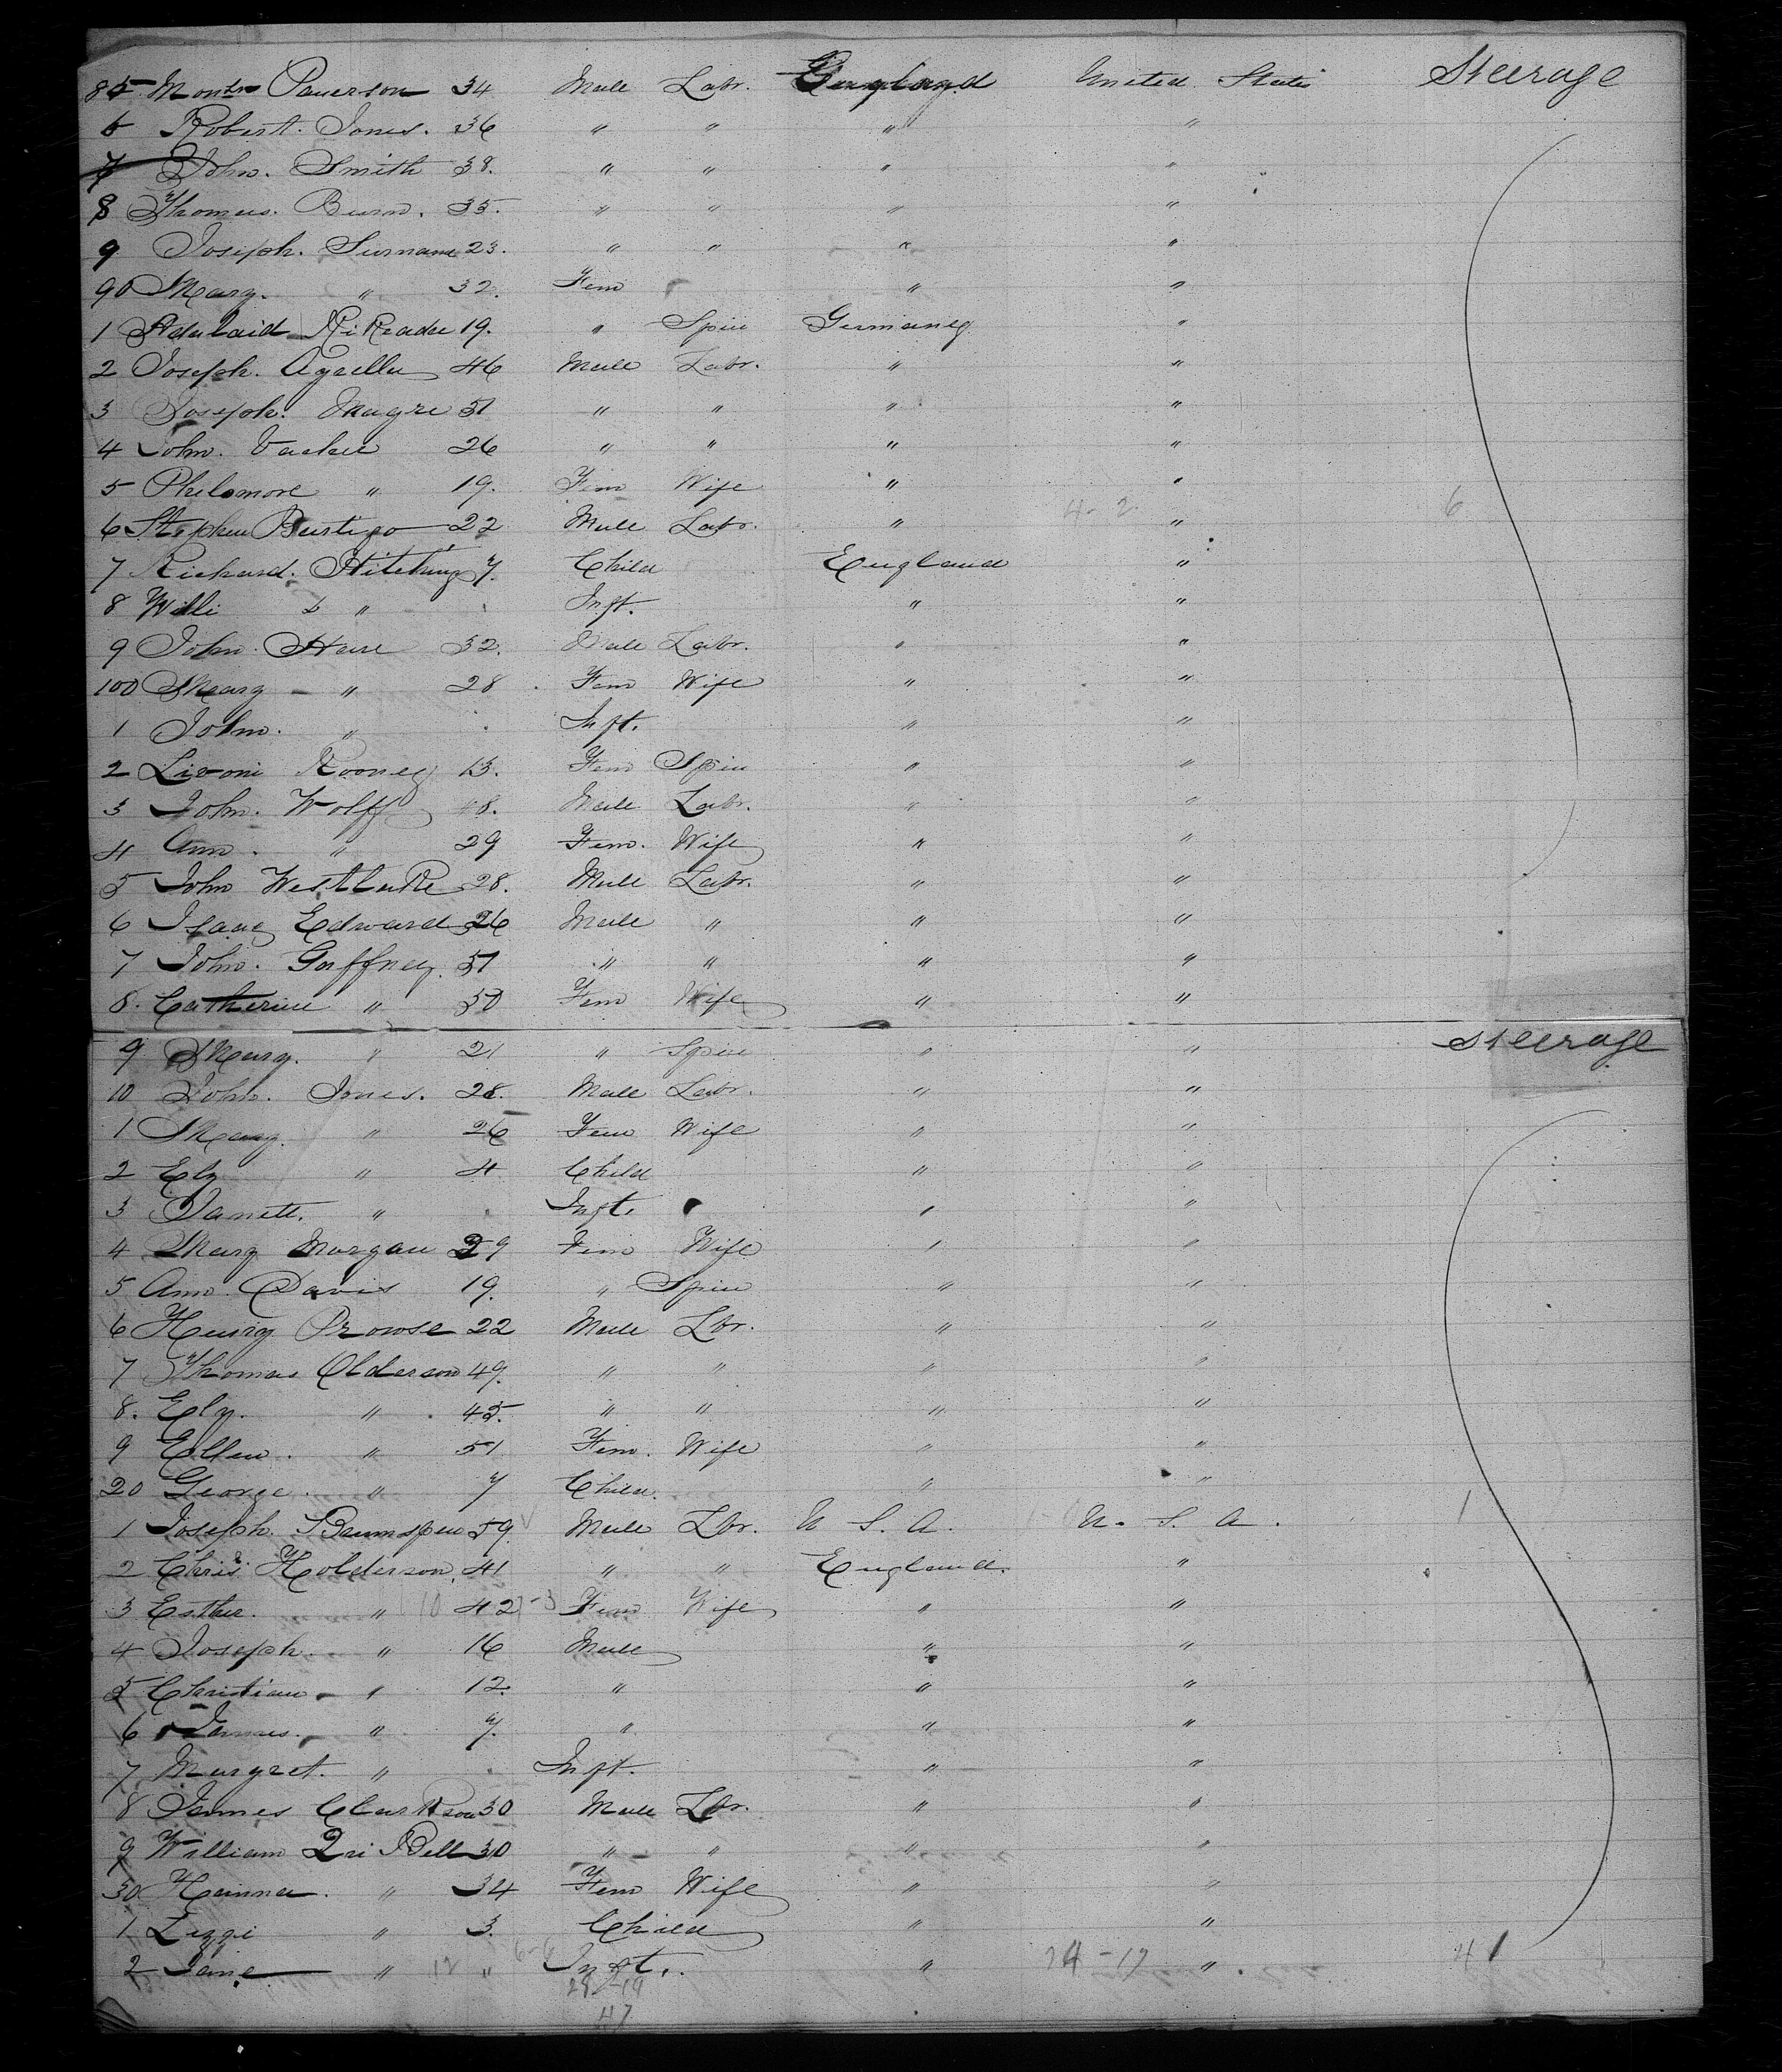 85 Pauerson 34 Male Labr. England United States Steerage
6 Robert. Jones. 36 " " " "
7 John. Smith 38. " " " "
8 Thomas. Burn. 35. " " " "
9 Joseph. Surname 23. " " " "
90 Mary. " 32. Fem " "
1 Adalaid 19. " Spin Germany "
2 Joseph. Agrella 46 Male Labr. " "
3 Joseph. Magre 31 " " " "
4 John. 26 " " " "
5 Philomore " 19. Fem Wife " "
6 Stephen 22 Male Labr. " 4-2 " 6
7 Richard. Hitchings 7. Child England "
8 Willi " Inft. " "
9 John. Hare 32. Male Labr. " "
100 Mary - " 28 Fem Wife " "
1 John. " Inft. " "
2 Rooney 13. Fem Spin " "
3 John. Wolff 48. Male Labr. " "
4 Ann. " 29 Fem. Wife " "
5 John Westlake 28. Male Labr. " "
6 Isaac Edward 26 Male " " "
7 John. Gaffney. 51 " " " "
8. Catherine " 50 Fem Wife " "
9 Mary. " 21 " Spin " " Steerage
10 John. Jones. 28. Male Labr. " "
1 Mary. " 26 Fem Wife " "
2 Elz " 4 Child " "
3 Janett. " Inft. " "
4 Mary Morgan 29 Fem Wife " "
5 Ann. Davis 19. " Spin " "
6 Henry Prowse 22 Male Lbr. " "
7 Thomas Olderson 49. " " " "
8. Elz. " 45. " " " "
9 Ellen. " 51 Fem. Wife " "
20 George. " 7 Child. " "
1 Joseph. 59. Male Lbr. U S. A. U. S. A. 1
2 Chris Holderson. 41 " " England. "
3 Esther. " 10 42 -3 Fem Wife " "
4 Joseph. " 16 Male " "
5 Christian - " 12. " " "
6 James. " 7. " " "
7 Margret. " Inft. " "
8 James Clarkson 30 Male Lbr. " "
9 William Bell 30 " " " "
30 Hanna. " 34 Fem Wife " "
1 Lizzi " 3. Child " "
2 Jane " 12 " 6-6 Inft. " 24-17 " 41
28-19
47